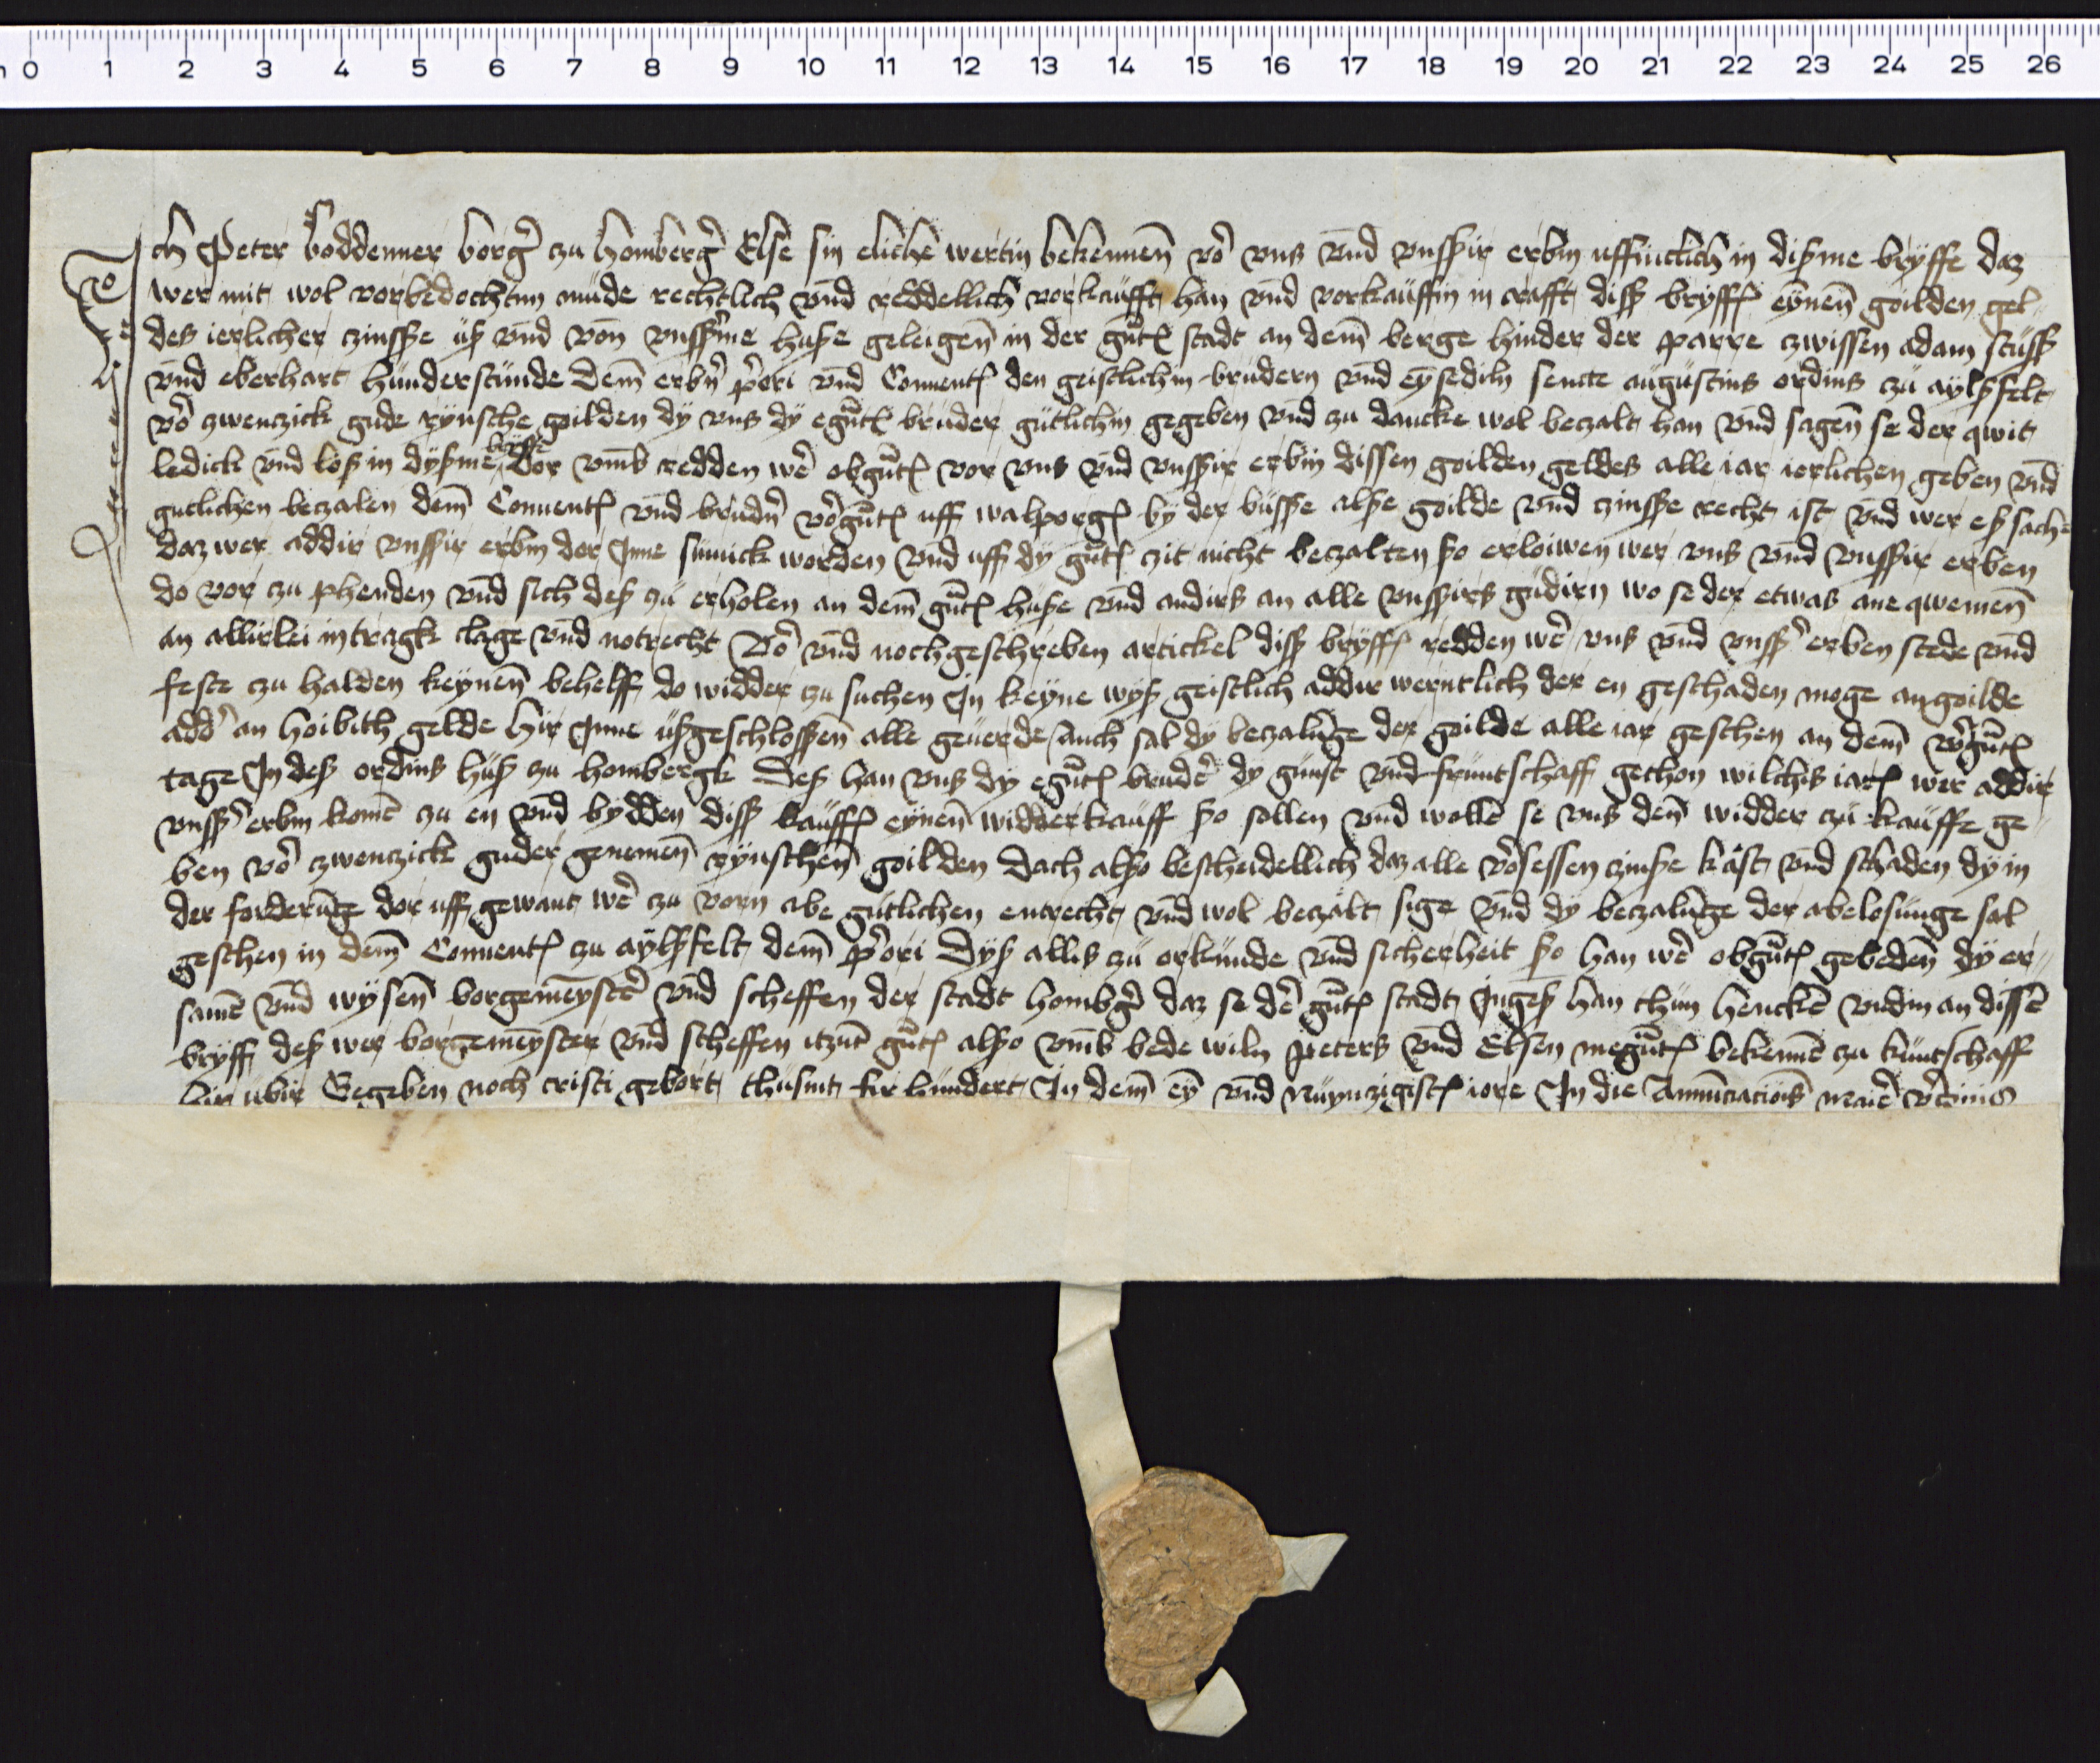 0 1 2 3 4 5 6 7 8 9 10 11 12 13 14 15 16 17 18 19 20 21 22 23 24 25 26
Ich Peter boddenner borg̉ zu homberg̉ Else sin eliche wertin bekennen̄ vo̓ vns vn̄d vnsßir erbin uffintlich in dißme bryffe daz
wer mit wol vorbedochtim mude rechtlich vn̄d reddellich vorkaufft han vn̄d vorkauffin in crafft diſſ bryffſ eynen̄ goilden gel-
des ierlicher czinsße uß vn̄d von̄ vnsß̓me huße geleigen̄ in der gn̄tſ stadt an dem̄ berge hinder der parre zwissen adam stuſſ
vn̄d eberhart hunderstunde dem̄ erbn̓ p̓ori vn̄d Conuentſ den geistlichin brudern vn̄d eynsediln sencte augustins ordins zu aylßfelt
vo̓ zwenczick gude rynsche goilden dy vns dy egn̄tſ bruder gutlichin gegeben vn̄d zu dancke wol beczalt han vn̄d sagen̄ se der qwit
ledick vn̄d loß in dyßme bryffe dor vm̄b redden we̓ obgn̄tſ vor vns vn̄d vnsßir erbin dissen goilden geldes alle iar ierlichen geben vn̄d
gutlichen beczalen dem̄ Conuentſ vn̄d brudn̓ vo̓gn̄tſ uff walporgſ by der busße alße goilde vn̄d czinsße recht ist vn̄d wer eß sache
daz wer addir vnsßir erbin dor Inne sumick worden vnd uff dy gn̄tſ zit nicht beczalten ßo erloiwen wer vns vn̄d vnsßir erben
do vor zu phenden vn̄d sich deß zu erholen an dem̄ gn̄tſ huße vn̄d andirs an alle vnsßirs gudirn wo se der etwas ane qwemen̄
an allirlei intragk clage vn̄d notrecht Vo̓ vn̄d nochgeschreben artickel diſſ bryffſ redden we̓ vns vn̄d vnsß̓ erben stede vn̄d
feste zu halden keynen̄ behelff do widder zu suchen In keyne wyß geistlich addir werntlich der en geschaden moge an goilde
add̓ an hoibith gelde hir Inne ußgeschlosßen̄ alle geuerde Auch sal dy beczalun̄ge der goilde alle iar geschen an dem̄ vo̓gn̄tſ
tage In deß ordins huß zu hombergk Deß han vns dy egn̄tſ brude̓ dy gunst vn̄d fruntschaff gethon wilchis iarſ wer addir
vnsß̓ erbin kome̅ zu en vn̄d bydden diſſ kauffſ eynen̄ widderkauff ßo sollen vn̄d wolle̅ se vns den̄ widder zu kauffe ge-
ben vo̓ zwenczick guder genemen̄ rynschen̄ goilden Dach alßo bescheidellich daz alle vo̓sessen czinße kost vn̄d schaden dy in
der forderun̄ge dor uff gewant we̓ zu vorn abe gutlichen entrecht vn̄d wol beczalt sige vn̄d dy beczalun̄ge der abelosunge sal
geschen in dem̄ Conuentſ zu aylßfelt dem̄ p̓ori Dyß allis zu orkunde vn̄d sicherheit ßo han we̓ obgn̄tſ gebeden̄ dy er-
same̅ vn̄d wysen̄ borgemeyste̓ vn̄d scheffen der stadt homb̓g daz se de̓ gn̄tſ stadt Ingeß han thun hencke̅ vndin an disse̅
bryff deß wer borgemeyster vn̄d scheffen itzun̄t gn̄tſ alßo vm̄b bede wiln Peters vn̄d Elsen megn̄tſ bekenne̅ zu kuntschaff
hir ubir Gegeben noch cristi gebort thusint fir hundert In dem̄ ey̅ vn̄d Nuynzigistſ iore In die Annu̅ciacio̅is marie̓ v̓ginis